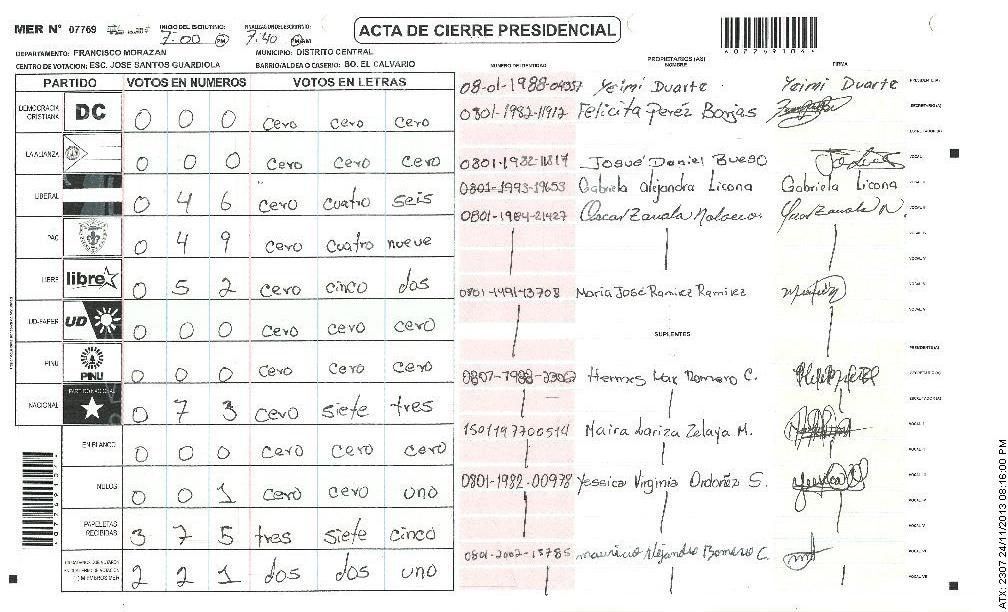 MER N° 07769 INICIO DEL ESCRUTINIO: 7:00 PM FINALIZACION ESCRUTINIO: 7:40 ACTA DE CIERRE PRESIDENCIAL
DEPARTAMENTO: FRANCISCO MORAZAN MUNICIPIO: DISTRITO CENTRAL
CENTRO DE VOTACION: ESC. JOSE SANTOS GUARDIOLA BARRIO/ALDEA O CASERIO: BO. EL CALVARIO
PARTIDO VOTOS EN NUMEROS VOTOS EN LETRAS
DEMOCRACIA CRISTIANA DC 0 0 0 cero cero cero
LA ALIANZA 0 0 0 cero cero cero
LIBERAL 0 4 6 cero cuatro seis
PAC 0 4 9 cero cuatro nueve
LIBRE libre 0 5 2 cero cinco dos
UD-FAPER UD 0 0 0 cero cero cero
PINU PINU 0 0 0 cero cero cero
NACIONAL 0 7 3 cero siete tres
EN BLANCO 0 0 0 cero cero cero
NULOS 0 0 1 cero cero uno
PAPELETAS RECIBIDAS 3 7 5 tres siete cinco
2 2 1 dos dos uno
NUMERO DE IDENTIDAD PROPIETARIOS (AS) NOMBRE FIRMA
Yeimi Duarte Yeimi Duarte PRESIDENTE(A)
0801-1982-11912 Felicita Perez Borjas SECRETARIO(A)
ESCRUTADOR(A)
0801-1982-11817 Josué Daniel Bueso VOCAL I
0801-1993-19653 Gabriela alejandra Licona Gabriela Licona
0801-1984-21427 Oscar Zavala
Maria José Ramirez Ramirez
SUPLENTES
PRESIDENTE(A)
Hermes Romero C. SECRETARIO(A)
ESCRUTADOR(A)
1501197700514 Naira Lariza Zelaya M. VOCAL I
0801-1982-00978 Yessica Virginia Ordoñez S.
Mauricio Alejandro Romero C.
ATX: 2307 24/11/2013 08:16:00 PM